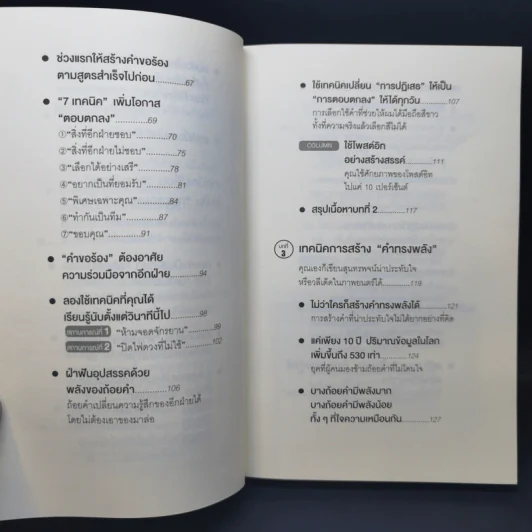 ● ช่วงแรกให้สร้างคำขอร้อง
ตามสูตรสำเร็จไปก่อน............67
● “7 เทคนิค” เพิ่มโอกาส
“ตอบตกลง”............69
①“สิ่งที่อีกฝ่ายชอบ”............70
②“สิ่งที่อีกฝ่ายไม่ชอบ”............75
③“เลือกได้อย่างเสรี”............78
④“อยากเป็นที่ยอมรับ”............81
⑤“พิเศษเฉพาะคุณ”............84
⑥“ทำกันเป็นทีม”............87
⑦“ขอบคุณ”............91
● “คำขอร้อง” ต้องอาศัย
ความร่วมมือจากอีกฝ่าย............94
● ลองใช้เทคนิคที่คุณได้
เรียนรู้นับตั้งแต่วินาทีนี้ไป............98
สถานการณ์ที่ 1 “ห้ามจอดจักรยาน”............99
สถานการณ์ที่ 2 “ปิดไฟดวงที่ไม่ใช้”............102
● ฝ่าฟันอุปสรรคด้วย
พลังของถ้อยคำ............106
ถ้อยคำเปลี่ยนความรู้สึกของอีกฝ่ายได้
โดยไม่ต้องเอาของมาล่อ
● ใช้เทคนิคเปลี่ยน “การปฏิเสธ” ให้เป็น
“การตอบตกลง” ให้ได้ทุกวัน............107
การเลือกใช้คำที่ช่วยให้ผมได้มือถือสีขาว
ทั้งที่ความจริงแล้วเลือกสีไม่ได้
COLUMN ใช้โพสต์อิท
อย่างสร้างสรรค์............111
คุณใช้ศักยภาพของโพสต์อิท
ไปแค่ 10 เปอร์เซ็นต์
● สรุปเนื้อหาบทที่ 2............117
บทที่ 3 เทคนิคการสร้าง “คำทรงพลัง”
คุณเองก็เขียนสุนทรพจน์น่าประทับใจ
หรือวลีเด็ดในภาพยนตร์ได้............118
● ไม่ว่าใครก็สร้างคำทรงพลังได้............121
การสร้างคำที่น่าประทับใจไม่ได้ยากอย่างที่คิด
● แค่เพียง 10 ปี ปริมาณข้อมูลในโลก
เพิ่มขึ้นถึง 530 เท่า............124
ยุคที่ผู้คนมองข้ามถ้อยคำที่ไม่โดนใจ
● บางถ้อยคำมีพลังมาก
บางถ้อยคำมีพลังน้อย
ทั้ง ๆ ที่ใจความเหมือนกัน............127